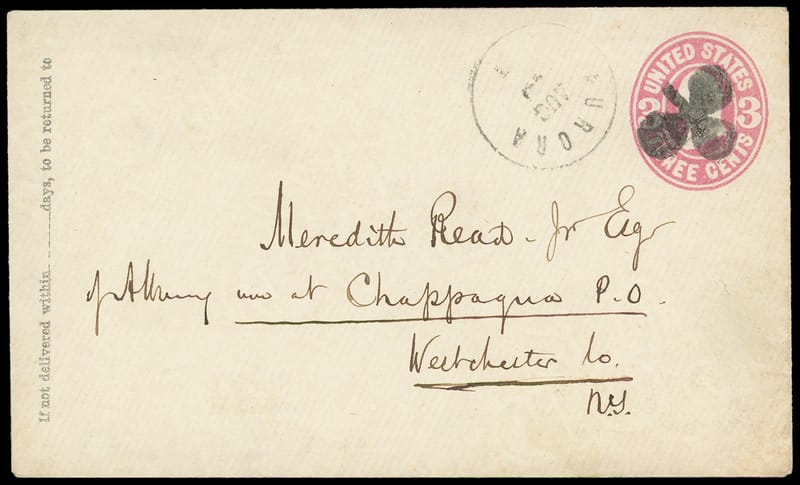 If not delivered within ........ days, to be returned to
AURORA
AUG
UNITED STATES
3
THREE CENTS
Meredith Read. Jr Esqr
of Albany now at Chappaqua P.O.
Westchester Co.
N.Y.